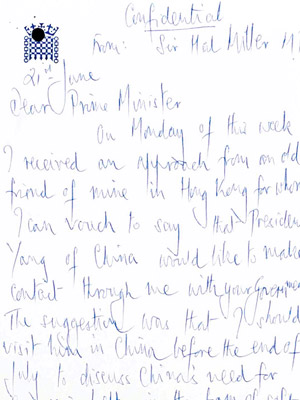 Confidential
From: Sir Hal Miller M
21st June
Dear Prime Minister
On Monday of this week
I received an approach from an old
friend of mine in Hong Kong for whom
I can vouch to say that Presiden
Yang of China would like to make
contact through me with your Governmen
The suggestion was that I should
visit him in China before the end of
July to discuss China's need for